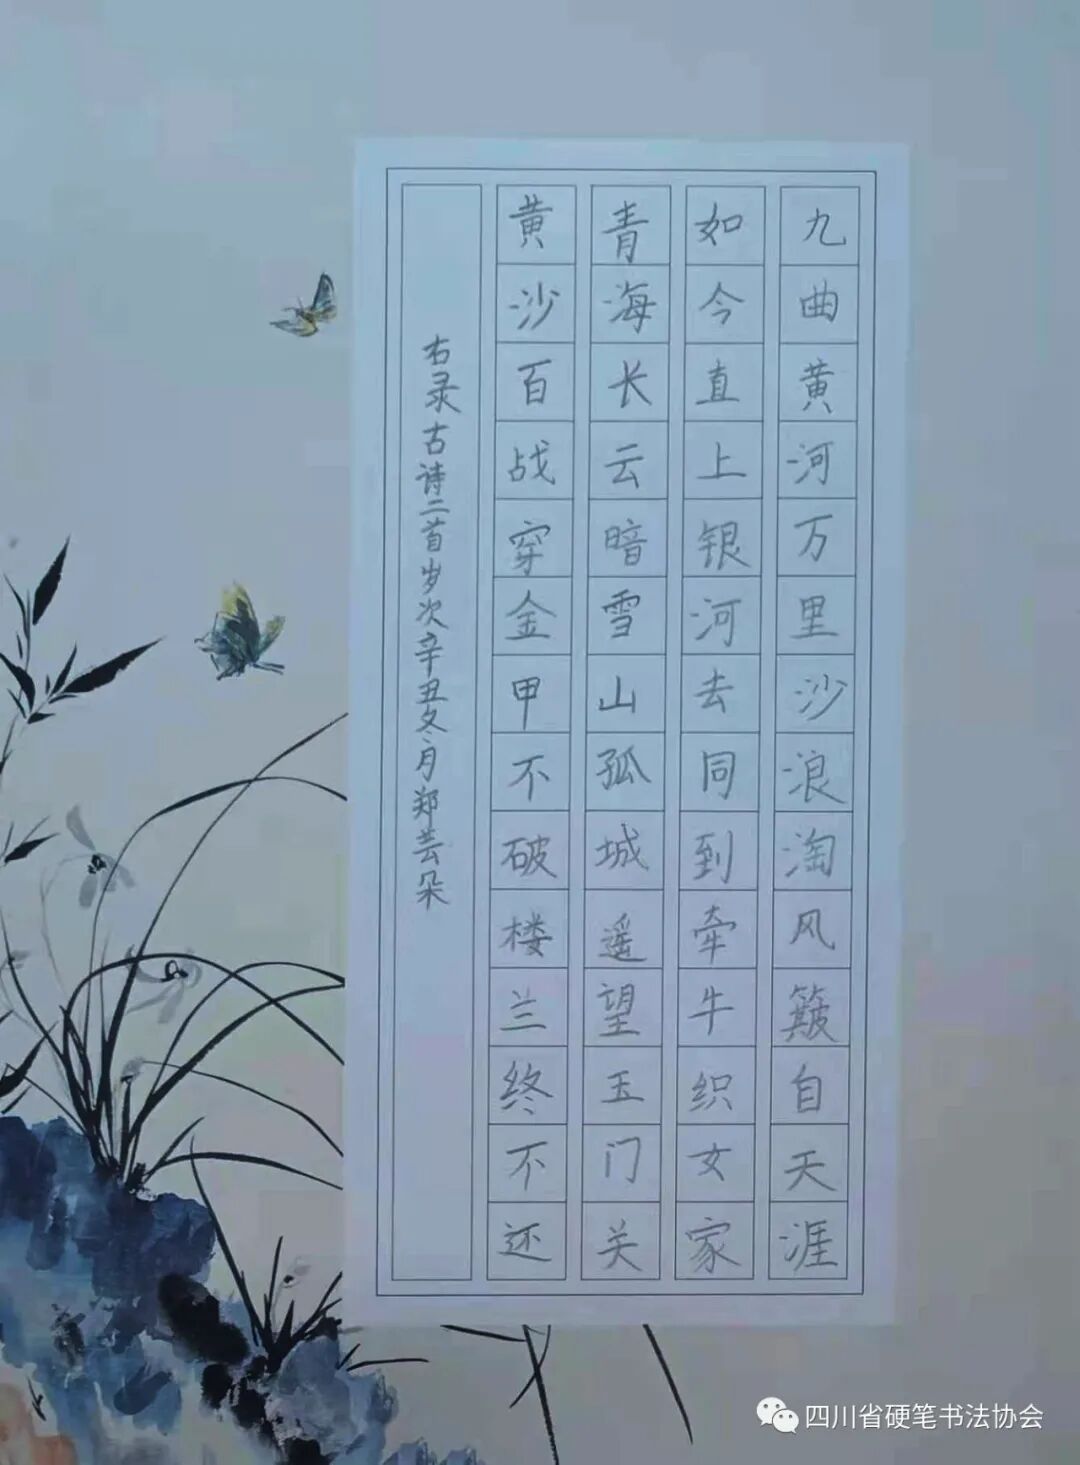 九曲黄河万里沙浪淘风簸自天涯
如今直上银河去同到牵牛织女家
青海长云暗雪山孤城遥望玉门关
黄沙百战穿金甲不破楼兰终不还
右录古诗二首岁次辛丑冬月郑芸朵
四川省硬笔书法协会